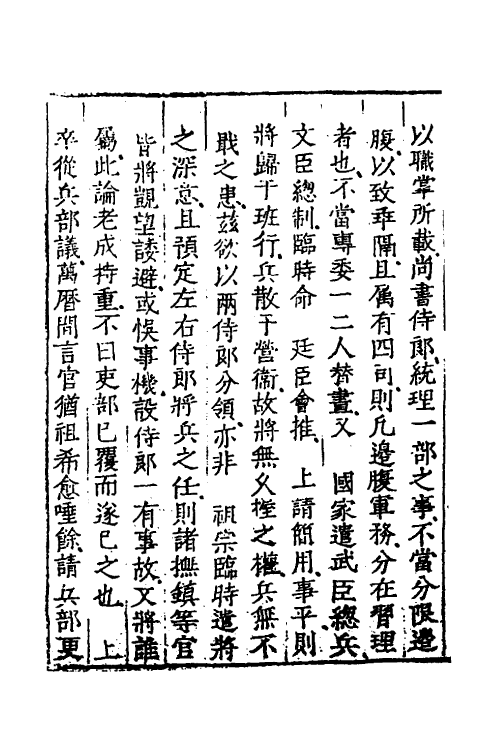 以職掌所載尚書侍郎統理一部之事不當分限邊
腹以致乖隔且属有四司則凡邊腹軍務分在習理
者也不當專委一二人替畫又 國家遣武臣總兵
文臣總制臨時命 廷臣會推 上請簡用事平則
將歸于班行兵散于營衞故將無久極之權兵無不
戢之患兹欲以兩侍郎分領亦非 祖宗臨時遣將
之深意且預定左右侍郎將兵之任則諸撫鎮等官
皆將觀望諉避或悞事機設侍郎一有事故又將誰
屬此論老成持重不曰吏部已覆而遂已之也 上
卒從兵部議萬曆間言官猶祖希愈唾餘請兵部更